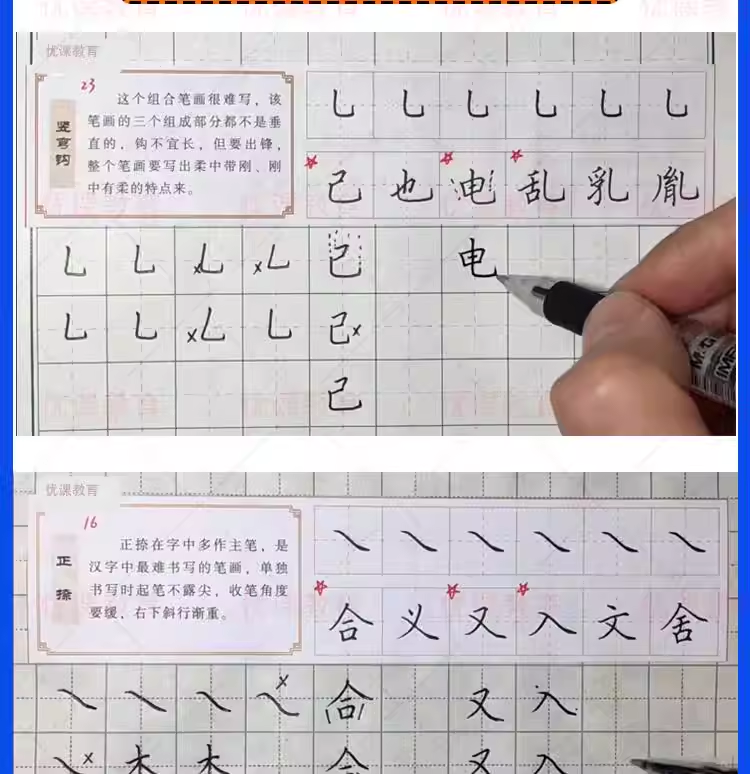 优课教育
23
竖弯钩
这个组合笔画很难写，该
笔画的三个组成部分都不是垂
直的，钩不宜长，但要出锋，
整个笔画要写出柔中带刚、刚
中有柔的特点来。
乚 乚 乚 乚 乚 乚
己 也 电 乱 乳 胤
乚 乚 乚 乚 己 电
乚 乚 乚 乚 己
己
优课教育
16
正捺
正捺在字中多作主笔，是
汉字中最难书写的笔画，单独
书写时起笔不露尖，收笔角度
要缓，右下斜行渐重。
㇏ ㇏ ㇏ ㇏ ㇏ ㇏
合 义 又 入 文 舍
㇏ ㇏ ㇏ ㇏ 合 又 入
㇏ 木 木 合 又 入